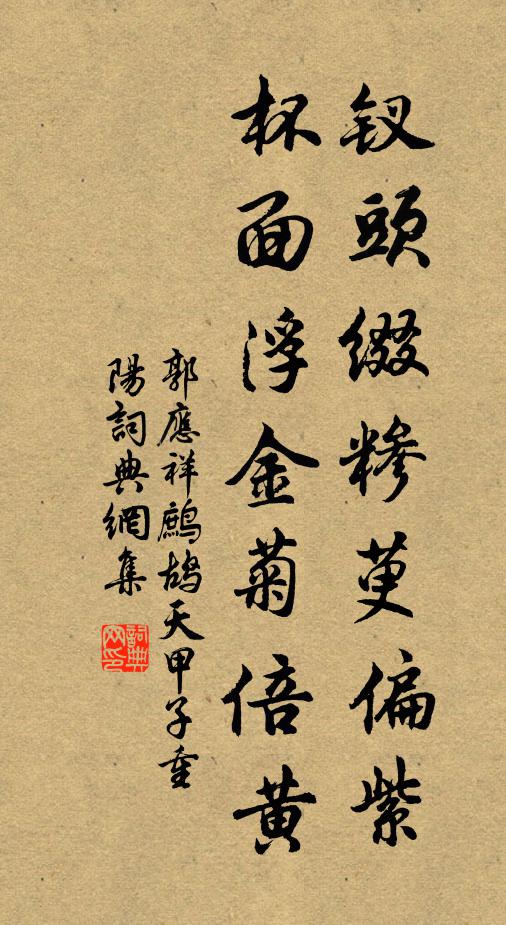 钗頭綴糝萸偏紫
杯面浮金菊倍黃
郭應祥鷓鴣天甲子重
陽詞典網集
詞典网印